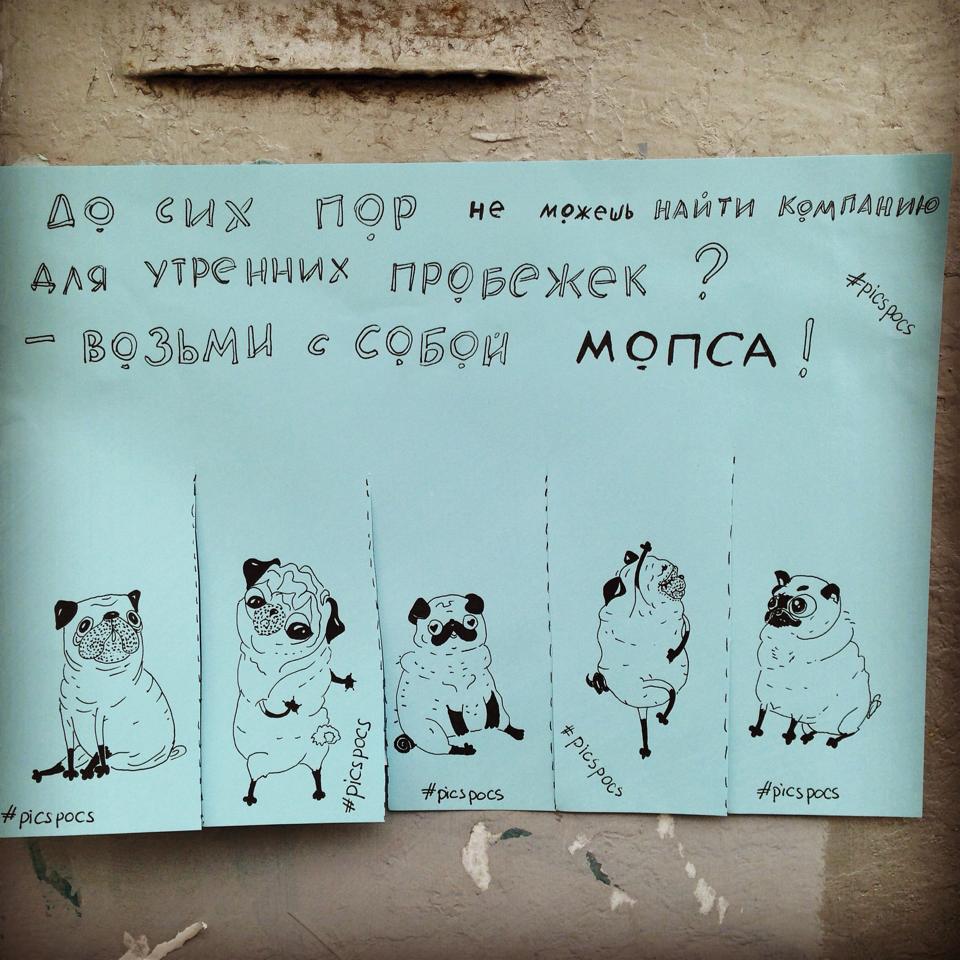 До сих пор не можешь найти компанию
для утренних пробежек ?
#picspocs
- возьми с собой МОПСА!
#picspocs
#picspocs
#picspocs
#picspocs
#picspocs